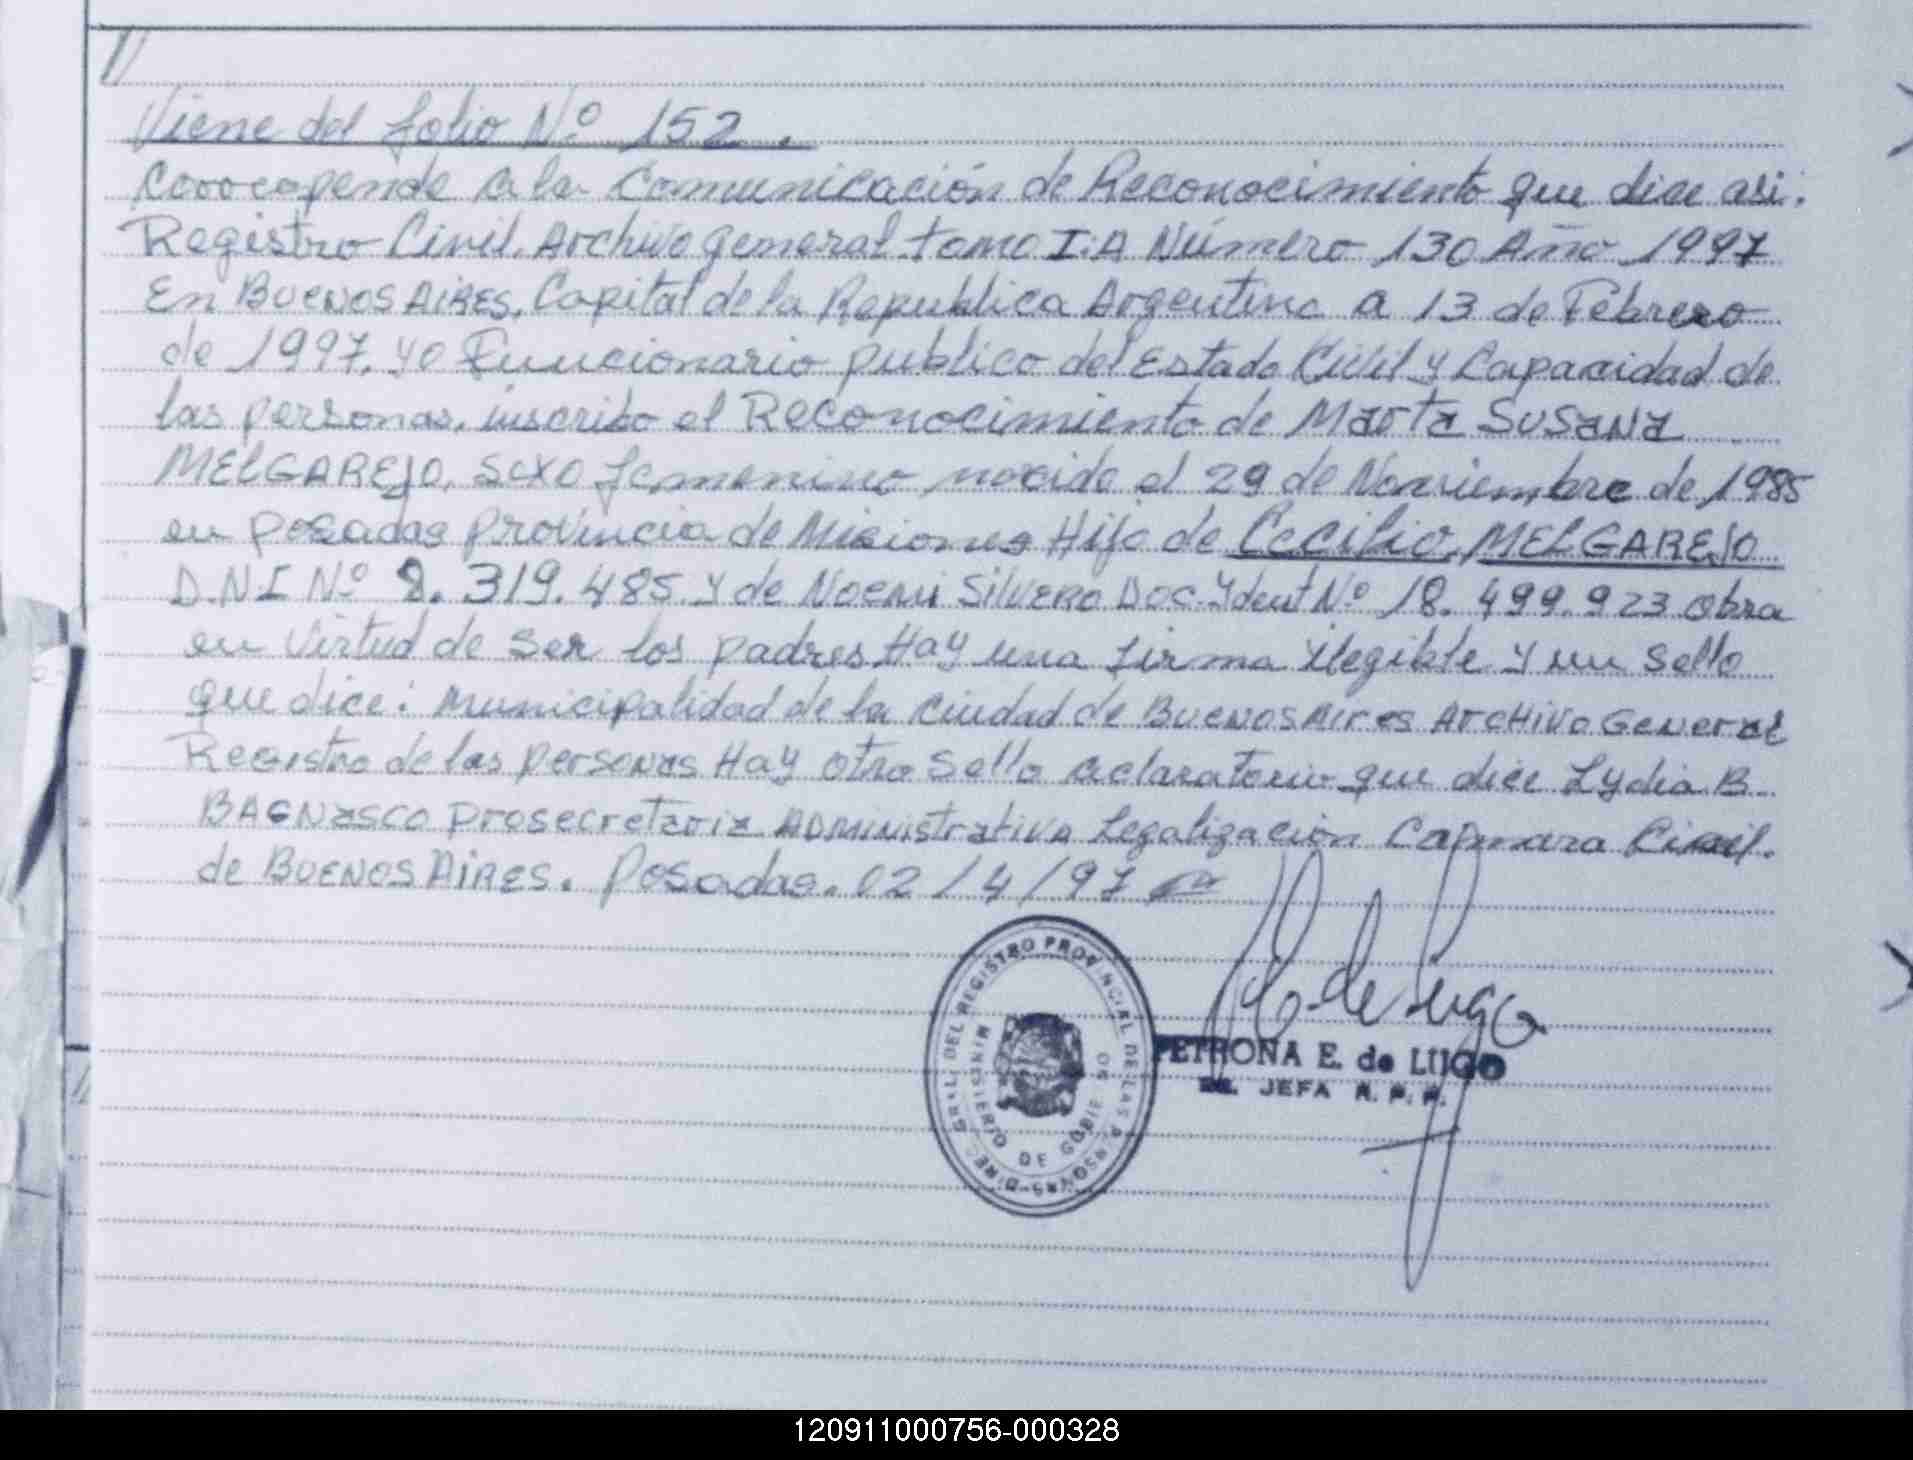 Viene del folio Nº 152.
Corrrespende a la Comunicación de Reconocimiento que dice asi.
Registro Civil. Archivo general tomo I.A Número 130 Año 1997
En BUENOS AIRES, Capital de la Republica Argentina a 13 de Febrero
de 1997, yo Funcionario publico del Estado Civil y Capacidad de
las personas, inscribo el Reconocimiento de Marta SUSANA
MELGAREJO, sexo femenino nacida el 29 de Noviembre de 1985
en posadas provincia de Misiones Hija de Cecilio MELGAREJO
D.N.I Nº 8.319.485 y de NOEMI SILVERO Doc. Ydent Nº 18.499.923 obra
en virtud de ser los padres Hay una firma ylegible y un sello
que dice: Municipalidad de la ciudad de BUENOS Aires Archivo General
Registro de las personas Hay otro sello aclaratorio que dice Lydia B.
BAGNASCO prosecretaria ADMINISTRATIVA Legalización Camara Civil.
de BUENOS AIRES. Posadas. 02/4/97
DIREC. GRAL. DEL REGISTRO PROVINCIAL DE LAS PERSONAS
MINISTERIO DE GOBIERNO
PETRONA E. de LUGO
JEFA R. P. P.
120911000756-000328